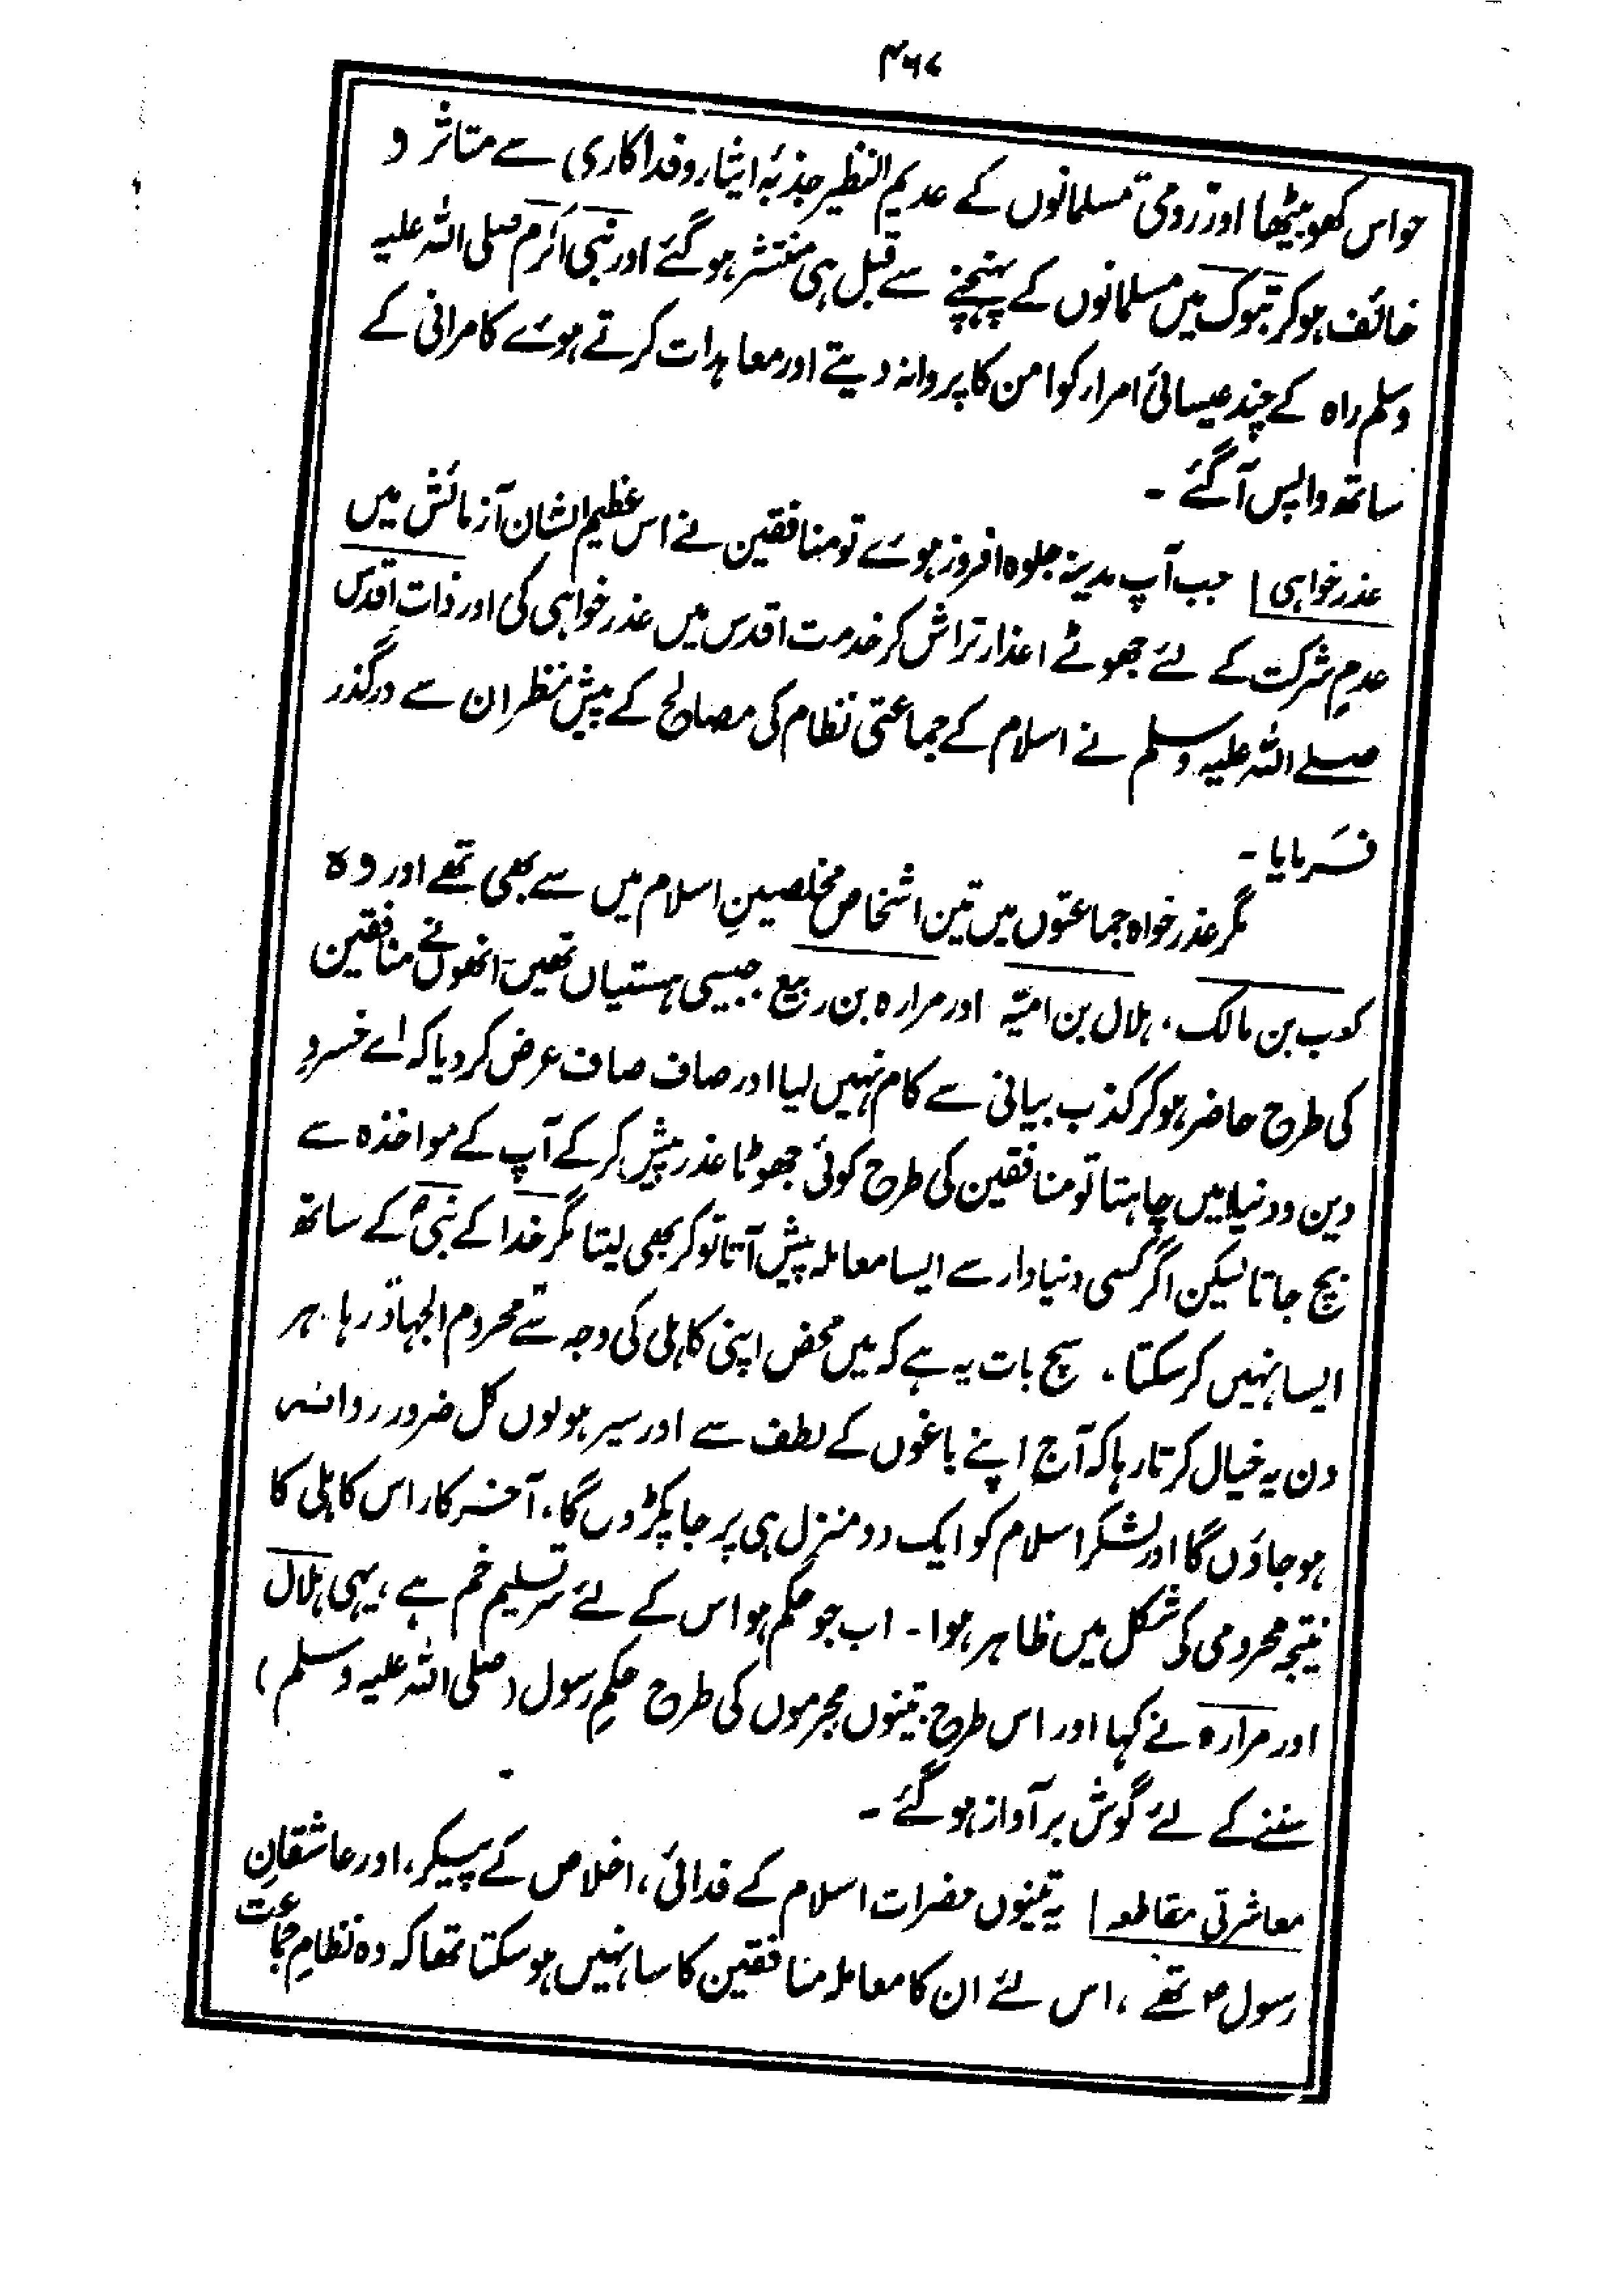 ۴۶۷
حواس کھو بیٹھا اور رومی مسلمانوں کے عدیم النظیر جذبۂ ایثار و فداکاری سے متاثر و
خائف ہو کر تبوک میں مسلمانوں کے پہنچنے سے قبل ہی منتشر ہو گئے اور نبی اکرم صلی اللہ علیہ
وسلم راہ کے چند عیسائی امراء کو امن کا پروانہ دیتے اور معاہدات کرتے ہوئے کامرانی کے
ساتھ واپس آگئے ۔
عذر خواہی جب آپ مدینہ جلوہ افروز ہوئے تو منافقین نے اس عظیم الشان آزمائش میں
عدمِ شرکت کے لئے جھوٹے اعذار تراش کر خدمت اقدس میں عذر خواہی کی اور ذاتِ اقدس
صلے اللہ علیہ وسلم نے اسلام کے جماعتی نظام کی مصالح کے پیش نظر ان سے درگذر
فرمایا ۔
مگر عذر خواہ جماعتوں میں تین اشخاص مخلصینِ اسلام میں سے بھی تھے اور وہ
کعب بن مالک، ہلال بن امیّہ اور مرارہ بن ربیع جیسی ہستیاں تھیں انھوں نے منافقین
کی طرح حاضر ہو کر کذب بیانی سے کام نہیں لیا اور صاف صاف عرض کر دیا کہ اے خسروِ
دین و دنیا میں چاہتا تو منافقین کی طرح کوئی جھوٹا عذر پیش کر کے آپ کے مواخذہ سے
بچ جاتا لیکن اگر کسی دنیا دار سے ایسا معاملہ پیش آتا تو کر بھی لیتا مگر خدا کے نبیؐ کے ساتھ
ایسا نہیں کر سکتا، سچ بات یہ ہے کہ میں محض اپنی کاہلی کی وجہ سے محروم الجہاد رہا. ہر
دن یہ خیال کرتا رہا کہ آج اپنے باغوں کے لطف سے اور سیر ہو لوں کل ضرور روانہ
ہو جاؤں گا اور لشکر اسلام کو ایک دو منزل ہی پر جا پکڑوں گا، آخر کار اس کاہلی کا
نتیجہ محرومی کی شکل میں ظاہر ہوا ۔ اب جو حکم ہو اس کے لئے سرِ تسلیم خم ہے، یہی ہلال
اور مرارہ نے کہا اور اس طرح تینوں مجرموں کی طرح حکمِ رسول (صلی اللہ علیہ وسلم)
سننے کے لئے گوش بر آواز ہو گئے ۔
معاشرتی مقاطعہ یہ تینوں حضرات اسلام کے فدائی، اخلاص کے پیکر، اور عاشقانِ
رسولؐ تھے، اس لئے ان کا معاملہ منافقین کا سا نہیں ہو سکتا تھا کہ وہ نظامِ جماعت